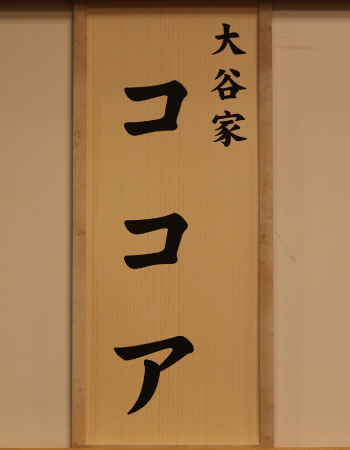 大谷家
ココア